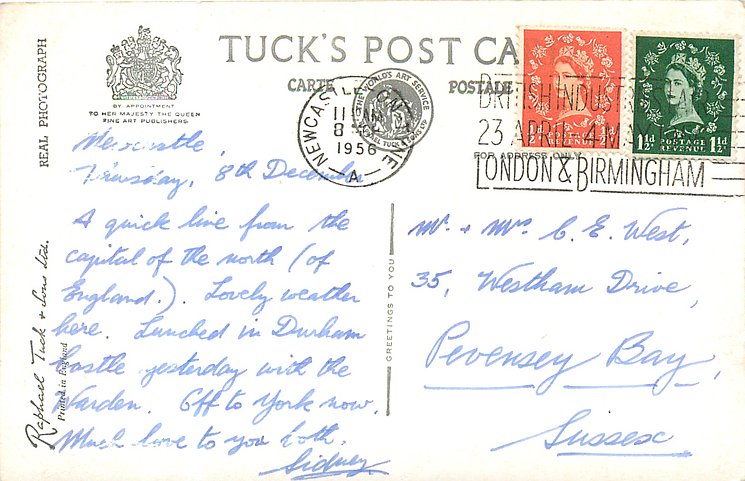 TUCK'S POST CA
CARTE POSTALE
REAL PHOTOGRAPH
BY APPOINTMENT
TO HER MAJESTY THE QUEEN
FINE ART PUBLISHERS
NEWCASTLE ON TYNE
11 AM
8
1956
A
THE WORLD'S ART SERVICE
BRITISH INDUSTRIES FAIR
23 APRIL 4 MAY
LONDON & BIRMINGHAM
½d POSTAGE REVENUE ½d
1½d POSTAGE REVENUE 1½d
FOR ADDRESS ONLY
Newcastle,
8th December
A quick line from the
capital of the north (of
England.). Lovely weather
here. Lunched in Durham
Castle yesterday with the
Warden. Off to York now.
Much love to you both.
Sidney
Raphael Tuck & Sons Ltd.
Printed in England
GREETINGS TO YOU
Mr. + Mrs C. E. West,
35, Westham Drive,
Pevensey Bay,
Sussex